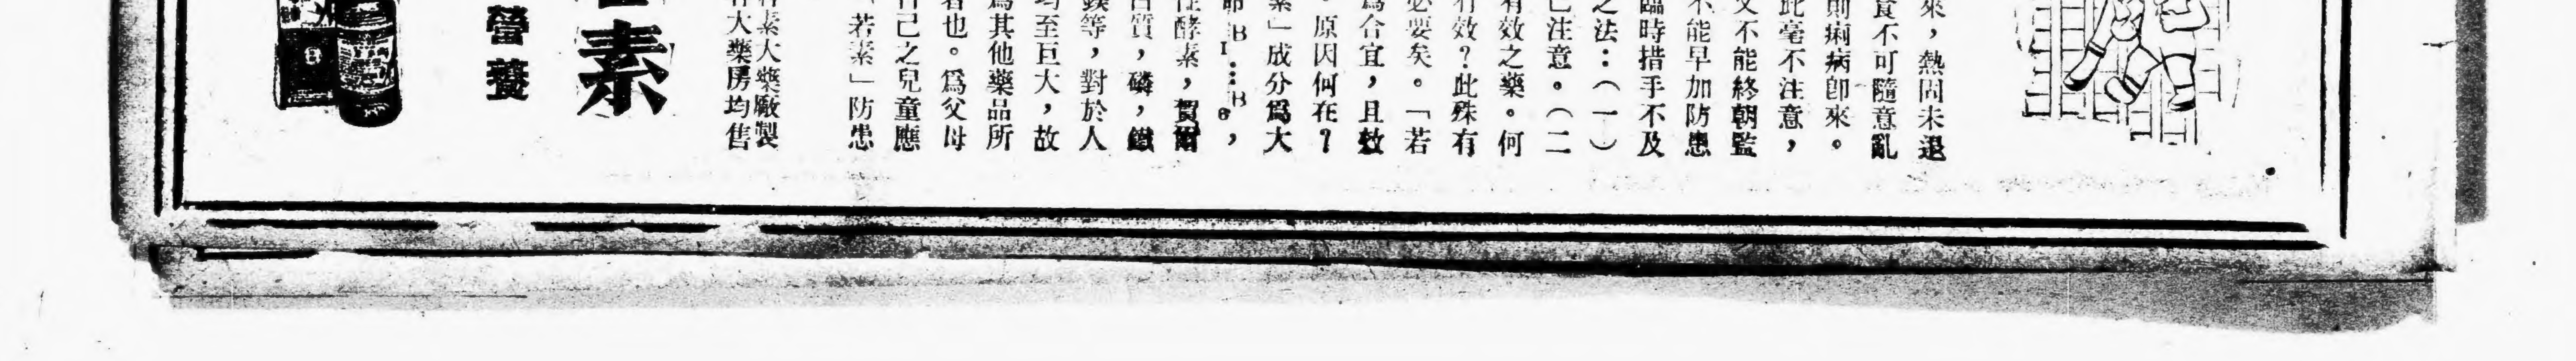 來，熱固未退
食不可隨意亂
則痢病卽來。
此毫不注意，
又不能終朝監
不能早加防患
臨時措手不及
之法：（一）
已注意。（二
有效之藥。何
有效？此殊有
必要矣。「若
爲合宜，且效
。原因何在？
素」成分爲大
B1…B6，
性酵素，賀爾
白質，磷，鐵
鎂等，對於人
均至巨大，故
爲其他藥品所
者也。爲父母
自己之兒童應
「若素」防患
若素大藥廠製
各大藥房均售
素
營養